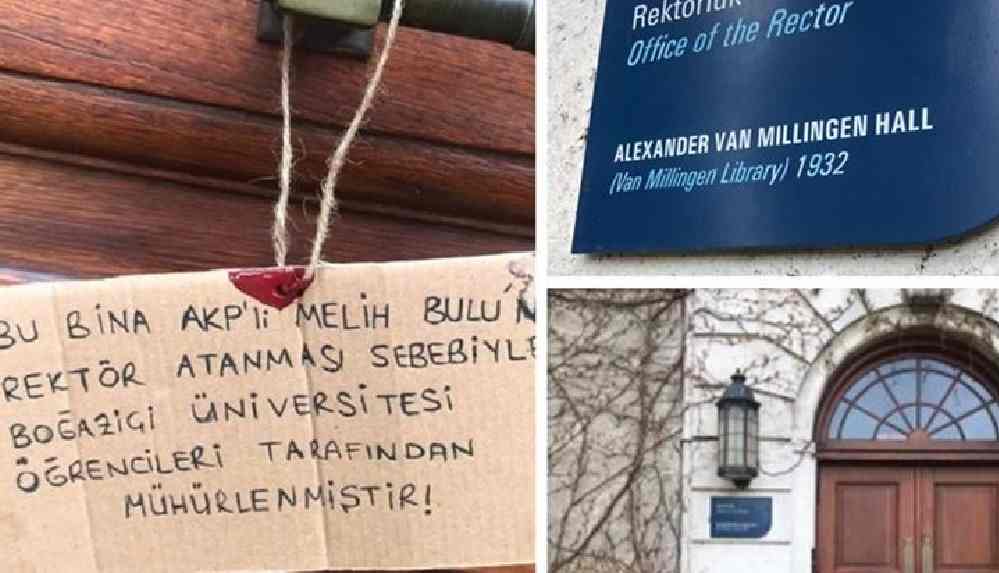 BU BİNA AKP'li MELİH BULU N
REKTÖR ATANMASI SEBEBİYLE
BOĞAZİÇİ ÜNİVERSİTESİ
ÖĞRENCİLERİ TARAFINDAN
MÜHÜRLENMİŞTİR!
Rektörlük
Office of the Rector
ALEXANDER VAN MILLINGEN HALL
(Van Millingen Library) 1932